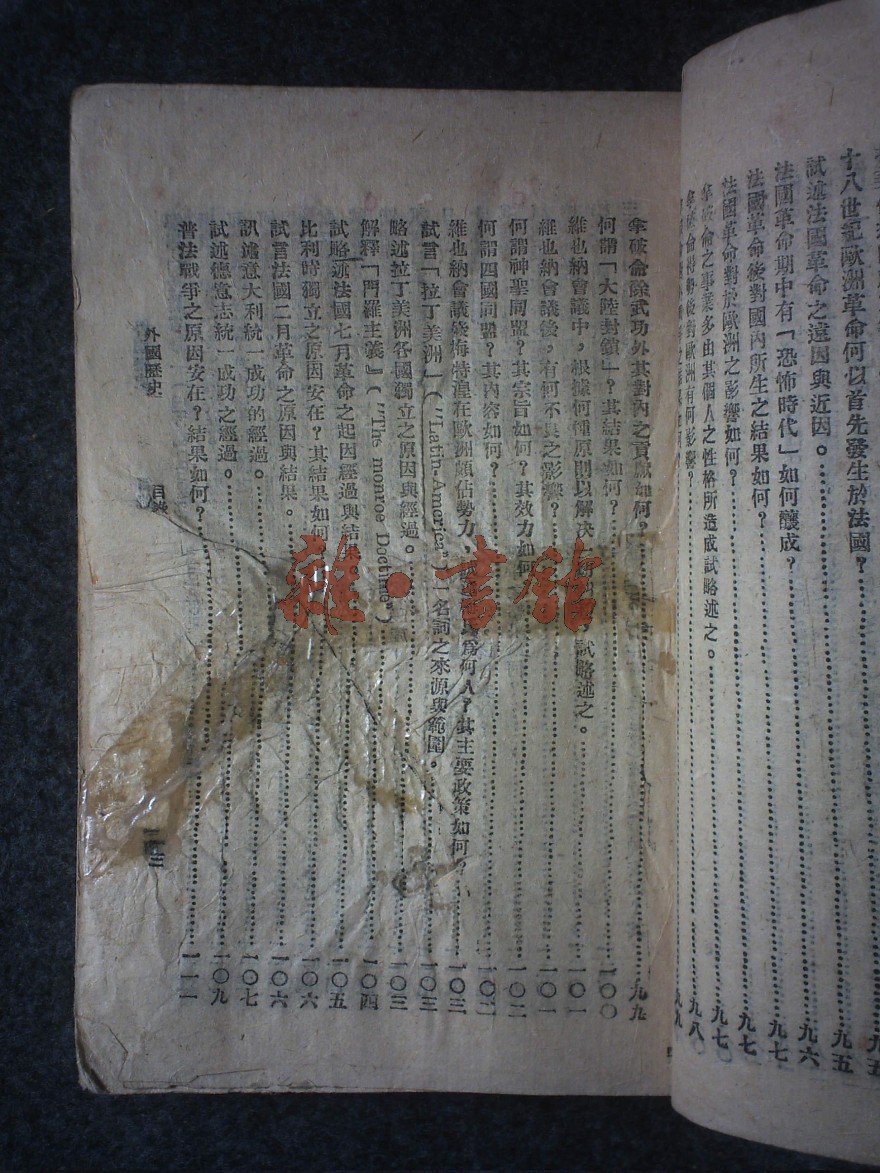 十八世紀歐洲革命何以首先發生於法國?……九五
試述法國革命之遠因與近因。……九五
法國革命期中有「恐怖時代」如何釀成?……九六
法國革命後對國內所生之結果如何?……九七
法國革命對於歐洲之影響如何?……九七
拿破侖之事業多由其個人之性格所造成試略述之。……九七
拿破侖得勢後對歐洲有何影響?……九八
九九
拿破侖除武功外其對內之貢獻如何?……九九
何謂「大陸封鎖」?其結果如何?……一〇〇
維也納會議中,根據何種原則以解決 試略述之。……一〇一
維也納會議後,有何不良之影響?……一〇一
何謂神聖同盟?其宗旨如何?其效力如何……一〇二
何謂四國同盟?其內容如何?……一〇二
維也納會議後梅特湟在歐洲頗佔勢力, 為何人?其主要政策如何?……一〇三
試言「拉丁美洲」("Latin-America")一名詞之來源與範圍。……一〇三
略述拉丁美洲各國獨立之原因與經過。……一〇三
解釋「門羅主義」("The monroe Doctrine")……一〇四
試略述法國七月革命之起因經過與結果。……一〇五
比利時獨立之原因安在?其結果如何……一〇六
試言法國二月革命之原因與結果。……一〇六
訊述意大利統一成功的經過。……一〇七
試述德意志統一成功之經過。……一〇九
普法戰爭之原因安在?結果如何?……一一一
外國歷史 目錄 三
雜·書館